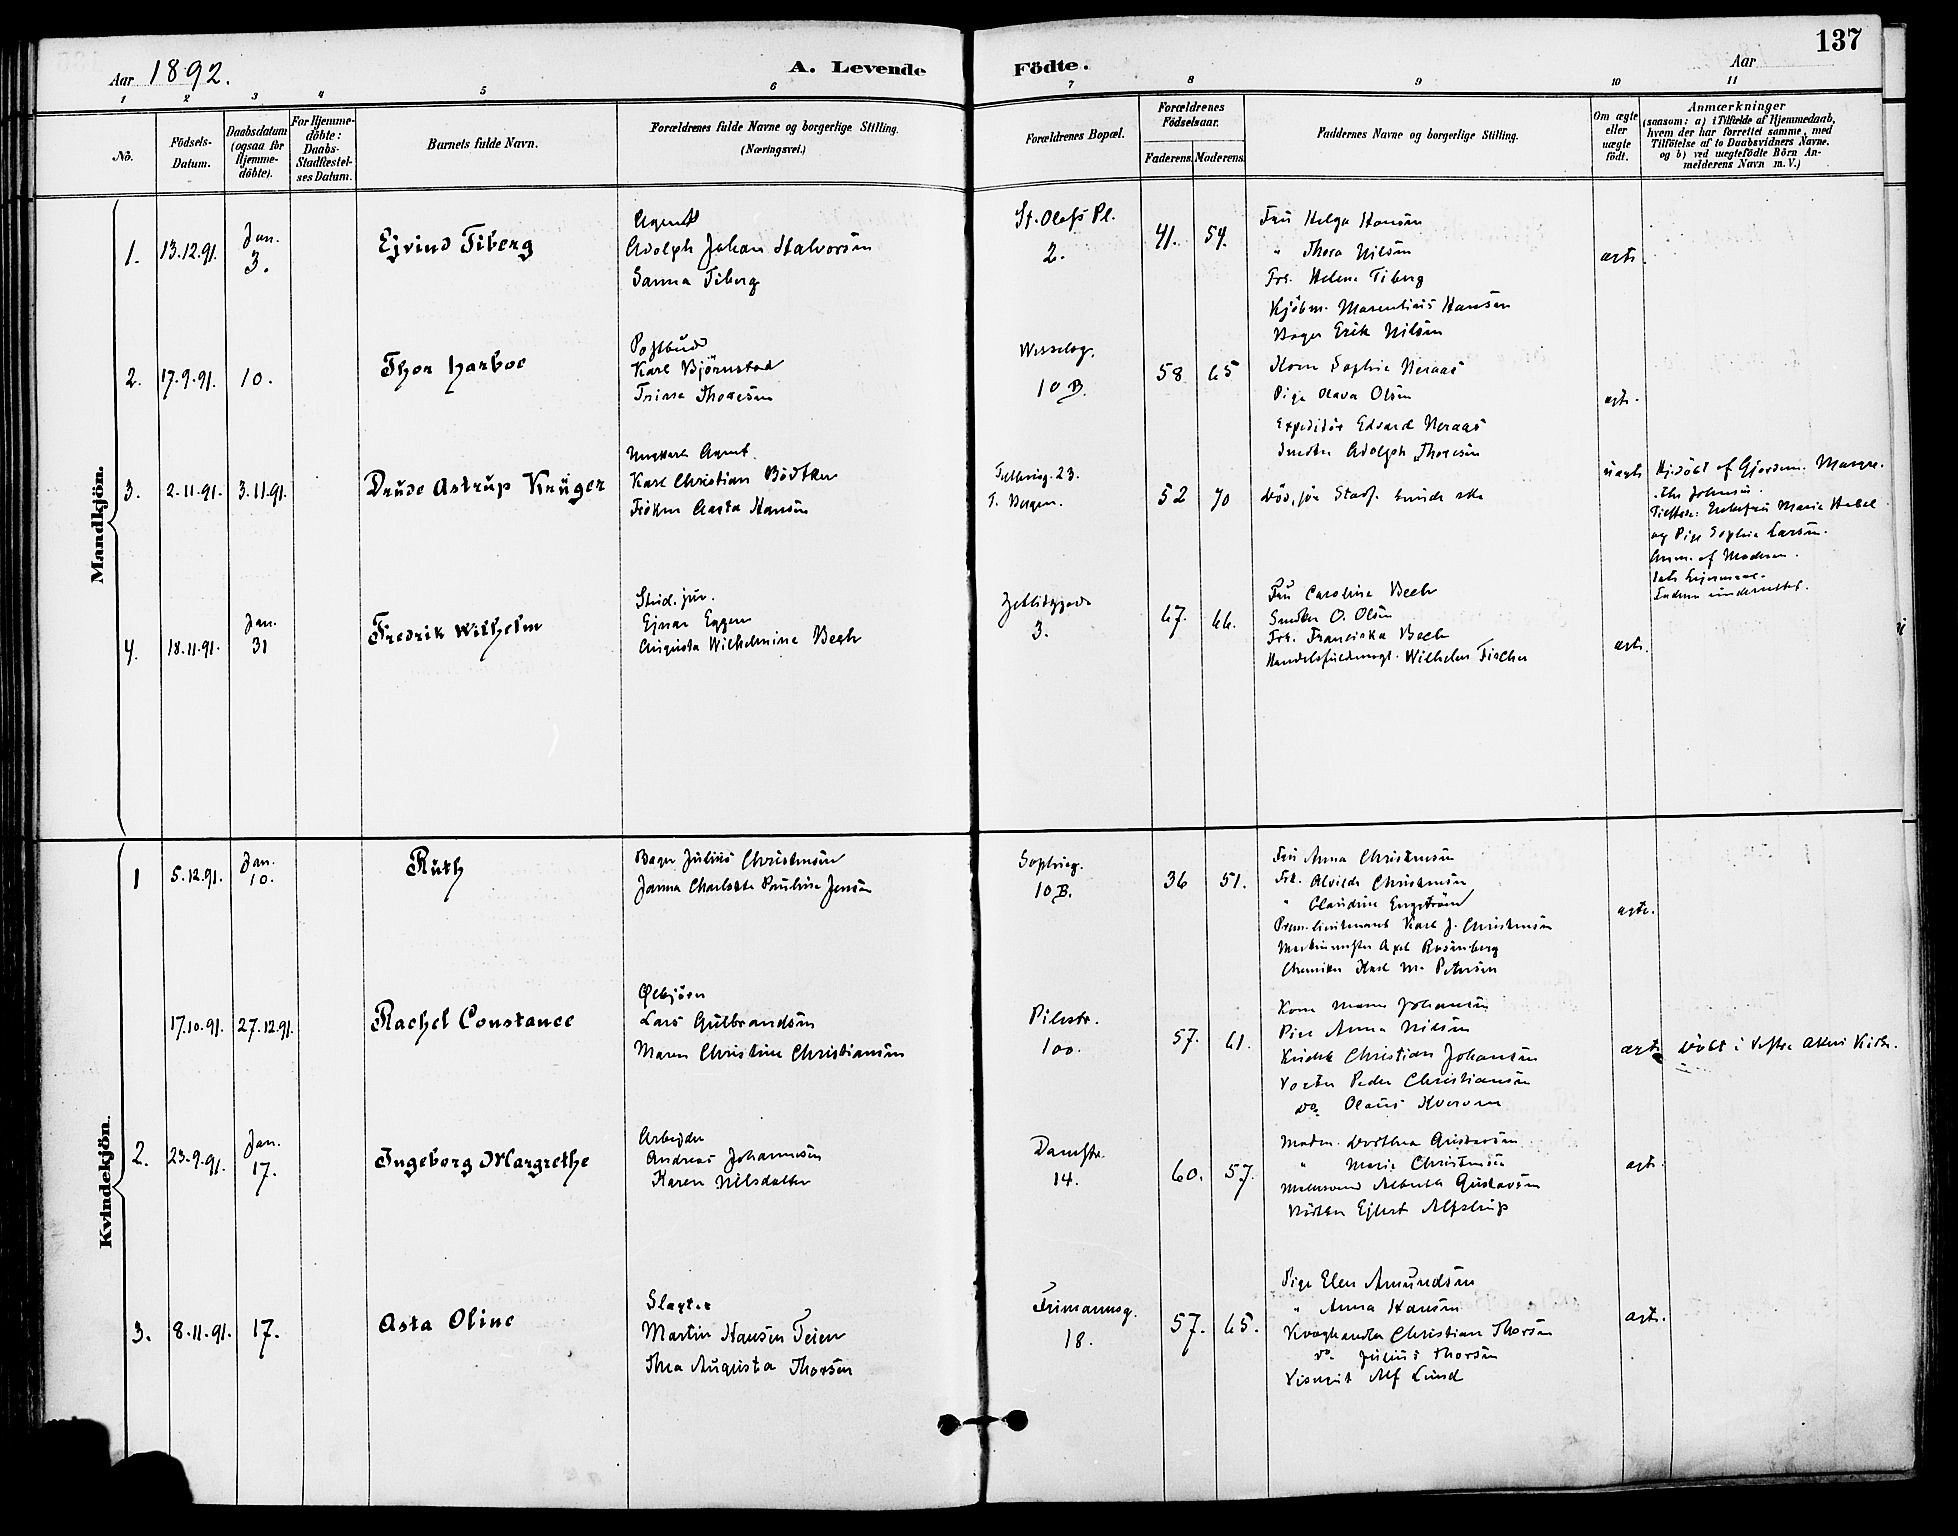 137
Aar 1892. A. Levende Födte. Aar
1 2 3 4 5 6 7 8 9 10 11
No.
Födsels-Datum.
Daabsdatum (ogsaa for Hjemme-döbte).
For Hjemme-döbte: Daabs-Stadfæstel-ses Datum.
Barnets fulde Navn.
Forældrenes fulde Navne og borgerlige Stilling.
(Næringsvei.)
Forældrenes Bopæl.
Forældrenes Födselsaar.
Faderens. Moderens.
Faddernes Navne og borgerlige Stilling.
Om ægte eller uægte födt.
Anmærkninger
(saasom: a) i Tilfælde af Hjemmedaab,
hvem der har forrettet samme, med
Tilföielse af to Daabsvidners Navne.
og b) ved uægtefödte Börn An-
melderens Navn m. V.)
Mandkjön.
1. 13.12.91. Jan. 3. Ejvind Tiberg
Agent
Adolph Johan Halvorsen
Sanna Tiberg
St. Olafs Pl.
2.
41. 54.
Fru Helga Hansen
" Thora Nilsen
Frk. Helene Tiberg
Kjöbm. Marentius Hansen
Bager Erik Nilsen
ægte.
2. 17.9.91. 10. Thor Harboe
Postbud
Karl Björnstad
Trine Thoresen
Wesselsg.
10 B.
58 65
Kone Sophie Neraas
Pige Olava Olsen
Expeditör Edvard Neraas
Adolph Thoresen
ægte.
3. 2.11.91. 3.11.91. Drude Astrup Krüger
Agent.
Karl Christian Bödtker
Fröken Aasta Hansen
23.
Bergen.
52 70
Död, för Stadf. kunde ske
uægte
Hjdöbt af Gjordem. Margre-
the Johnsen.
Marie Hebel
og Pige Sophie Larsen.
Anm. af Moderen.
4. 18.11.91. Jan. 31 Fredrik Wilhelm
Stud. jur.
Ejnar Eggen
Augusta Wilhelmine Beck
3.
67. 66.
Fru Caroline Beck
Snedker O. Olsen
Frk. Franciska Beck
Handelsfuldmægt. Wilhelm Fischer
ægte.
Kvindekjön.
1 5.12.91. Jan. 10. Ruth
Bager Julius Christensen
Janna Charlotte Pauline Jensen
Sophieg.
10 B.
36 51.
Fru Anna Christensen
Frk. Alvilde Christensen
" Claudine Engström
Prem.lieutenant Karl J. Christensen
Axel Rosenberg
Chemiker Karl M. Petersen
ægte.
17.10.91. 27.12.91. Rachel Constance
Lars Gulbrandsen
Maren Christine Christiansen
Pilestr.
100.
57. 61.
Kone Maren Johansen
Pige Anna Nilsen
Kudsk Christian Johansen
Peder Christiansen
do. Olaus
ægte
Döbt i Vestre Akers Kirke.
2. 23.9.91. Jan. 17. Ingeborg Margrethe
Arbejder
Andreas Johannesen
Karen Nilsdatter
Damstr.
14.
60. 57.
Madm. Dorthea Gustavsen
" Marie Christensen
Alberth Gustavsen
Ejlert Alfstrup
ægte.
3. 8.11.91. 17. Asta Oline
Slagter
Martin Hansen Teien
Thea Augusta Thorsen
Frimannsg.
18.
57. 65.
Pige Elen Amundsen
" Anna Hansen
Kvæghandler Christian Thorsen
do. Julius Thorsen
Visergut Alf Lund
ægte.